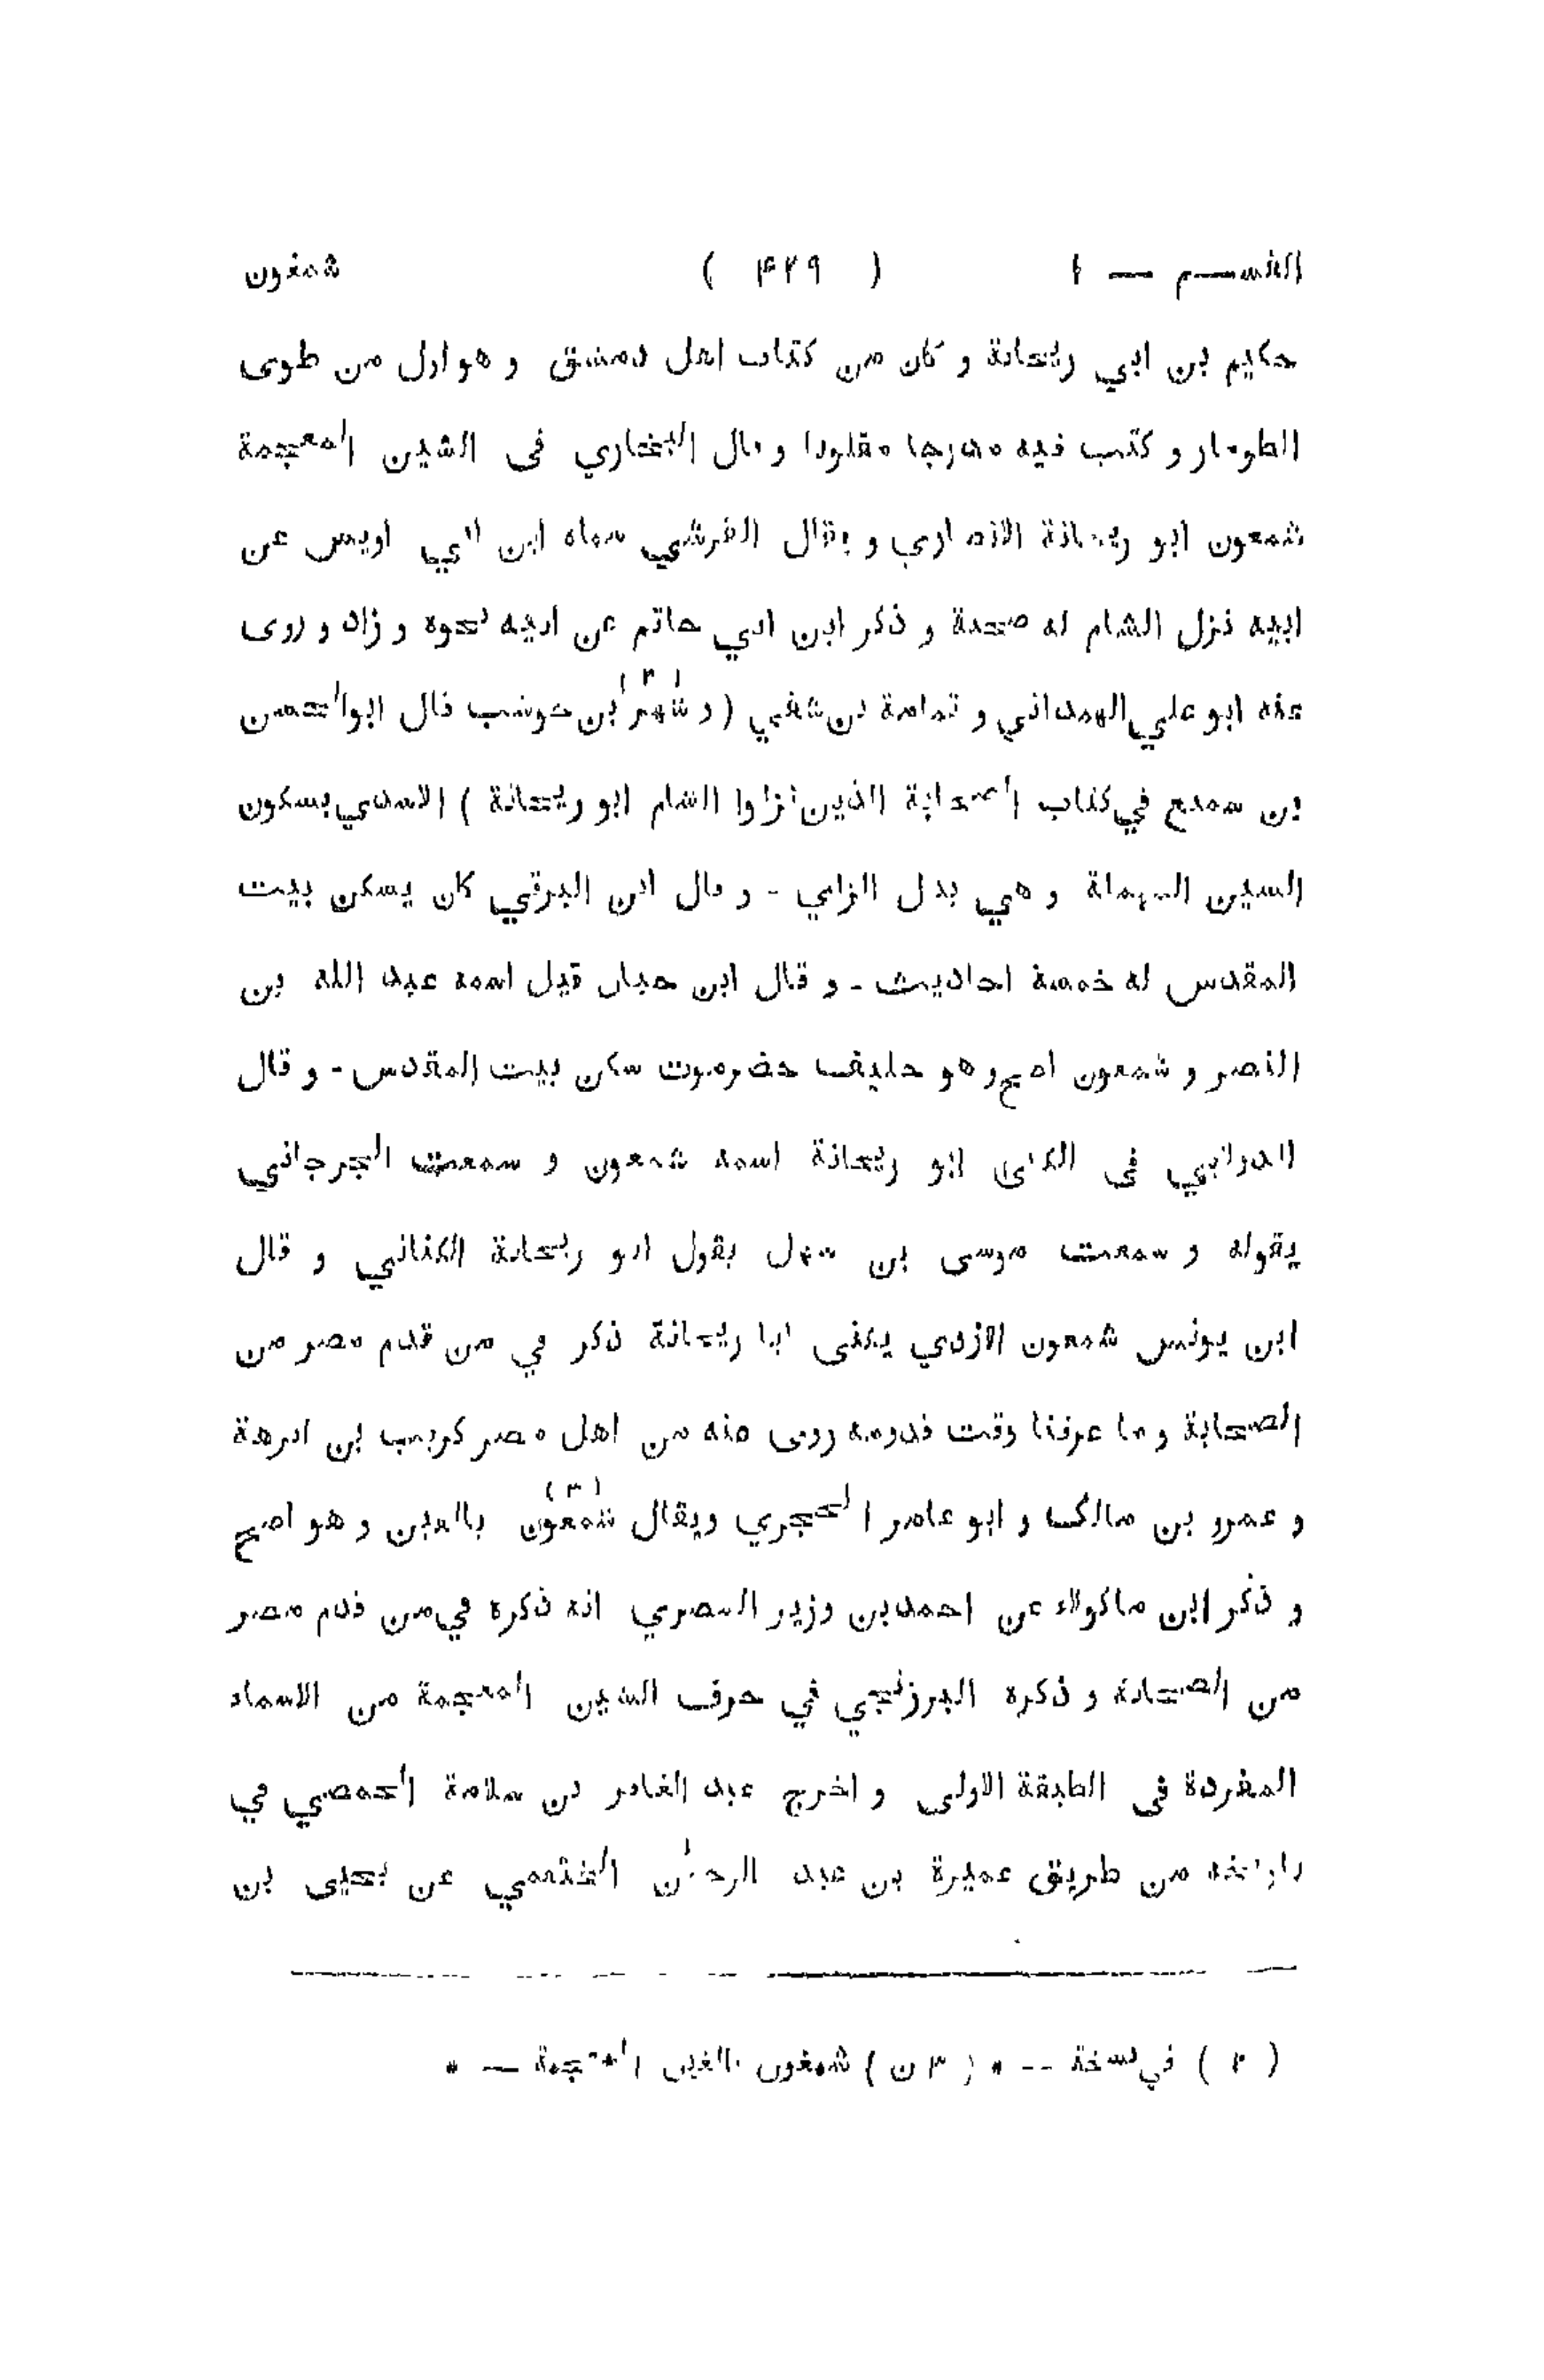 القســـم — ١ ( ۴۲۹ ) شمغون
حكيم بن ابي ريحانة و كان من كتاب اهل دمشق و هو اول من طوى
الطومار و كتب فيه مدرجا مقلوبا و قال البخاري فى الشين المعجمة
شمعون ابو ريحانة الانصاري و يقال القرشي سماه ابن ابي اويس عن
ابيه نزل الشام له صحبة و ذكر ابن ابي حاتم عن ابيه نحوه و زاد و روى
عنه ابو علي الهمداني و ثمامة بن شفي ( و شهر (٢) بن حوشب قال ابو الحسن
بن سميع في كتاب الصحابة الذين نزلوا الشام ابو ريحانة ) الاسدي بسكون
السين المهملة و هي بدل الزاي - و قال ابن البرقي كان يسكن بيت
المقدس له خمسة احاديث - و قال ابن حبان قيل اسمه عبد الله بن
النضر و شمعون اصح و هو حليف حضرموت سكن بيت المقدس - و قال
الدولابي فى الكنى ابو ريحانة اسمه شمعون و سمعت الجرجاني
يقوله و سمعت موسى بن سهل يقول ابو ريحانة الكناني و قال
ابن يونس شمعون الازدي يكنى ابا ريحانة ذكر في من قدم مصر من
الصحابة و ما عرفنا وقت قدومه روى عنه من اهل مصر كريب بن ابرهة
و عمرو بن مالك و ابو عامر الحجري ويقال شمعون (٣) بالعين و هو اصح
و ذكر ابن ماكولاء عن احمد بن وزير المصري انه ذكره في من قدم مصر
من الصحابة و ذكره البرزنجي في حرف الشين المعجمة من الاسماء
المفردة فى الطبقة الاولى و اخرج عبد الغافر بن سلامة الحمصي في
تاريخه من طريق عميرة بن عبد الرحمٰن الخثعمي عن يحيى بن
( ٢ ) في نسخة -- * ( ٣ ن ) شمغون بالغين المعجمة — *